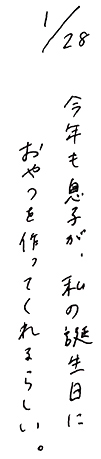 1/28
今年も息子が、私の誕生日に
おやつを作ってくれるらしい。